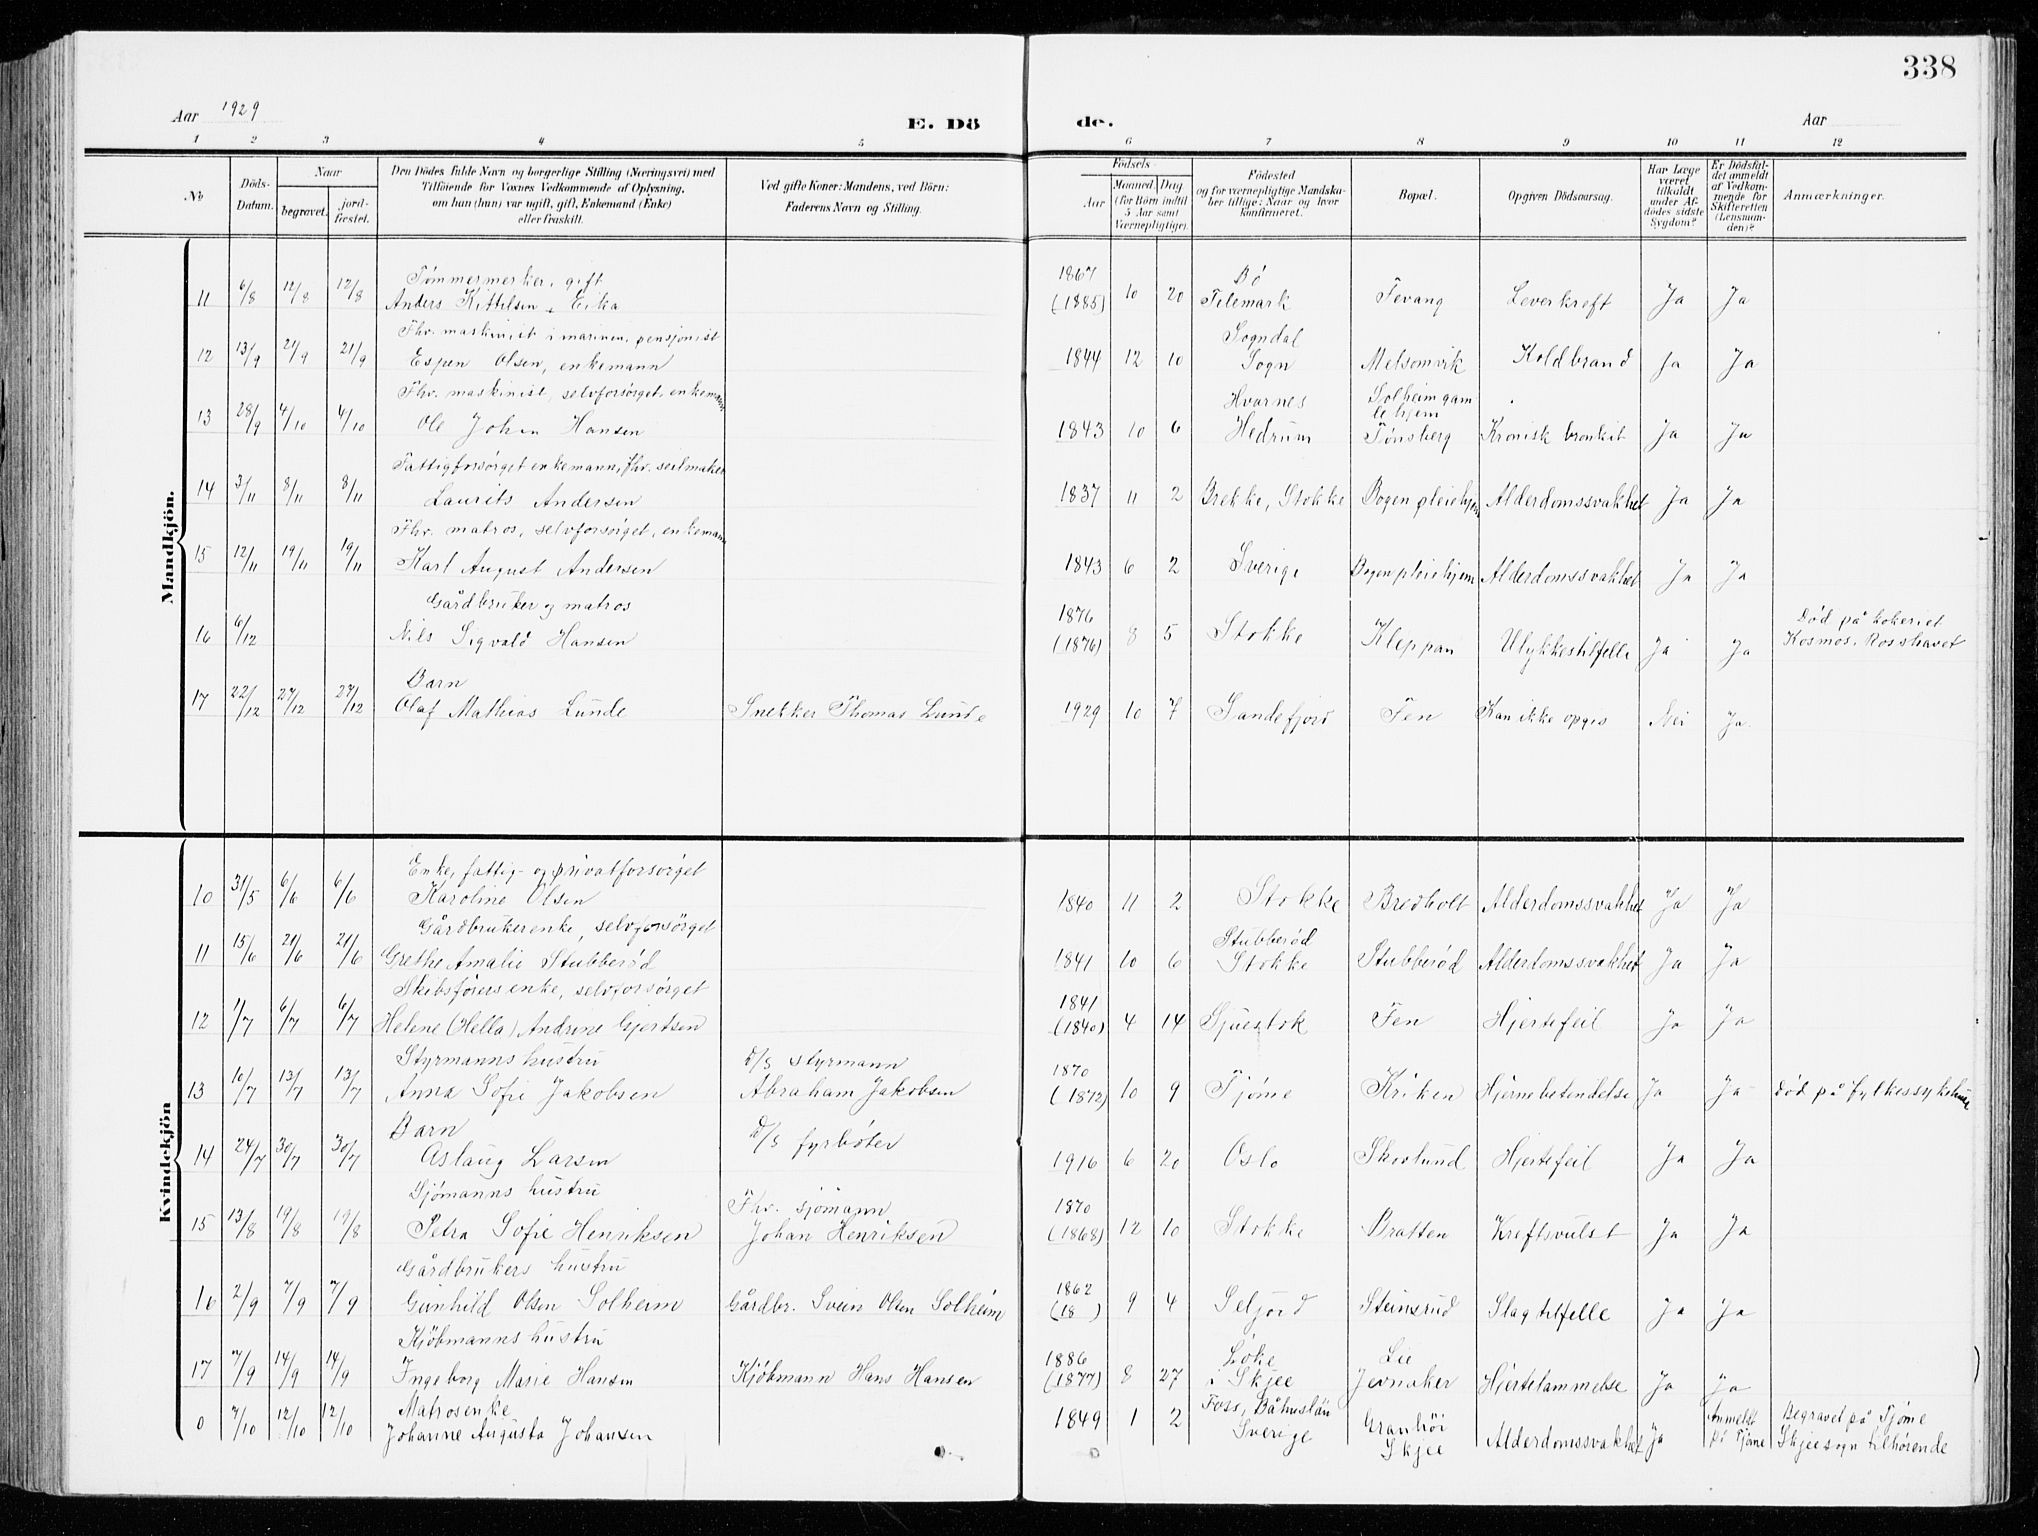 338
Aar 1929
E. Dö
de.
Aar
1 2 3 4 5 6 7 8 9 10 11 12
№
Döds-Datum.
Naar
begravet.
jord-festet.
Den Dödes fulde Navn og borgerlige Stilling (Næringsvei) med
Tilföiende for Voxnes Vedkommende af Oplysning,
om han (hun) var ugift, gift, Enkemand (Enke)
eller fraskilt.
Ved gifte Koner: Mandens, ved Börn:
Faderens Navn og Stilling.
Födsels
Aar
Maaned Dag
(for Börn indtil
5 Aar samt
Værnepligtige)
Födested
og for værnepligtige Mandska-
ber tillige: Naar og hvor
konfirmeret.
Bopæl.
Opgiven Dödsaarsag.
Har Læge
været
tilkaldt
under Af-
dödes sidste
Sygdom?
Er Dödsfal-
det anmeldt
af Vedkom-
mende for
Skifteretten
(Lensman-
den)?
Anmærkninger.
Mandkjön.
Tømmermerker, gift 1867 Bø
11 6/8 12/8 12/8 Anders Kittilsen Eika (1885) 10 20 Telemark Tevang Leverkreft Ja Ja
Fhv. maskinist i marinen, pensjonist Sogndal
12 13/9 21/9 21/9 Espen Olsen, enkemann 1844 12 10 Sogn Melsomvik Koldbrand Ja Ja
Fhv. maskinist, selvforsørget, enkemann Hvarnes Solheim gamlehjem
13 28/9 4/10 4/10 Ole Johan Hansen 1843 10 6 Hedrum Tønsberg Kronisk bronkit Ja Ja
Fattigforsørget enkemann, fhv. seilmaker
14 3/11 8/11 8/11 Laurits Andersen 1837 11 2 Brekke, Stokke Bogen pleiehjem Alderdomssvakhet Ja Ja
Fhv. matros, selvforsørget, enkemann
15 12/11 19/11 19/11 Karl August Andersen 1843 6 2 Sverige Bogen pleiehjem Alderdomssvakhet Ja Ja
Gårdbruker og matros 1876 Død på kokeriet
16 6/12 Nils Sigvald Hansen (1876) 8 5 Stokke Kleppan Ulykkestilfelle Ja Ja Kosmos, Rosshavet
Barn
17 22/12 27/12 27/12 Olaf Mathias Lunde Snekker Thomas Lunde 1929 10 7 Sandefjord Fen Kan ikke opgis Nei Ja
Kvindekjön
Enke, fattig- og privatforsørget
10 31/5 6/6 6/6 Karoline Olsen 1840 11 2 Stokke Bredholt Alderdomssvakhet Ja Ja
Gårdbrukerenke, selvforsørget Stubberød
11 15/6 21/6 21/6 Grethe Amalie Stubberød 1841 10 6 Stokke Stubberød Alderdomssvakhet Ja Ja
Skibsførers enke, selvforsørget 1841
12 1/7 6/7 6/7 Helene (Hella) Andrine Gjertsen (1840) 4 14 Sjuestok Fen Hjertefeil Ja Ja
Styrmanns hustru d/s styrmann 1870
13 10/7 13/7 13/7 Anna Sofie Jakobsen Abraham Jakobsen (1872) 10 9 Tjøme Kriken Hjernebetendelse Ja Ja Død på fylkessykehuse
Barn d/s fyrbøter
14 24/7 30/7 30/7 Aslaug Larsen 1916 6 20 Oslo Skovlund Hjertefeil Ja Ja
Sjømanns hustru Fhv. sjømann 1870
15 13/8 19/8 19/8 Petra Sofie Henriksen Johan Henriksen (1868) 12 10 Stokke Bratten Kreftsvulst Ja Ja
Gårdbrukers hustru 1862
16 2/9 7/9 7/9 Gunhild Olsen Solheim Gårdbr. Svein Olsen Solheim (18 ) 9 4 Seljord Steinsrud Slagtilfelle Ja Ja
Kjøbmanns hustru 1886 Løke Lie
17 7/9 14/9 14/9 Ingeborg Marie Hansen Kjøbmann Hans Hansen (1877) 8 27 i Skjee Jevnaker Hjertelammelse Ja Ja
Matrosenke Foss, Båhuslän Granhøi Anmeldt Begravet på Tjøme
0 7/10 12/10 12/10 Johanne Augusta Johansen 1849 1 2 Sverige Skjee Alderdomssvakhet Ja på Tjøme Skjee sogn tilhørende